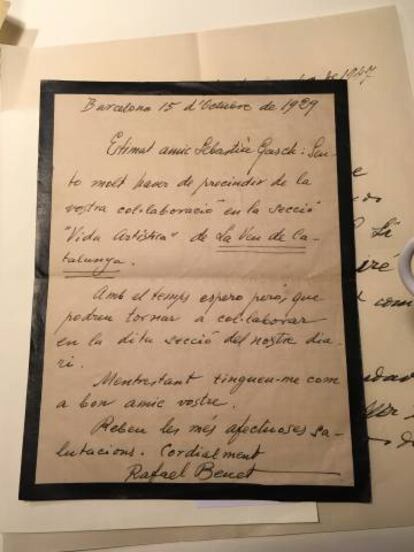 Barcelona 15 d'Octubre de 1929
de 1947
Estimat amic Sebastià Gasch: Sen-
to molt haver de precindir de la
vostra col·laboració en la secció
"Vida Artística" de La Veu de Ca-
talunya.
Amb el temps espero però, que
podreu tornar a col·laborar
en la dita secció del nostre dia-
ri.
Mentrestant tingueu-me com
a bon amic vostre.
Rebeu les més afectuoses sa-
lutacions. Cordialment
Rafael Benet